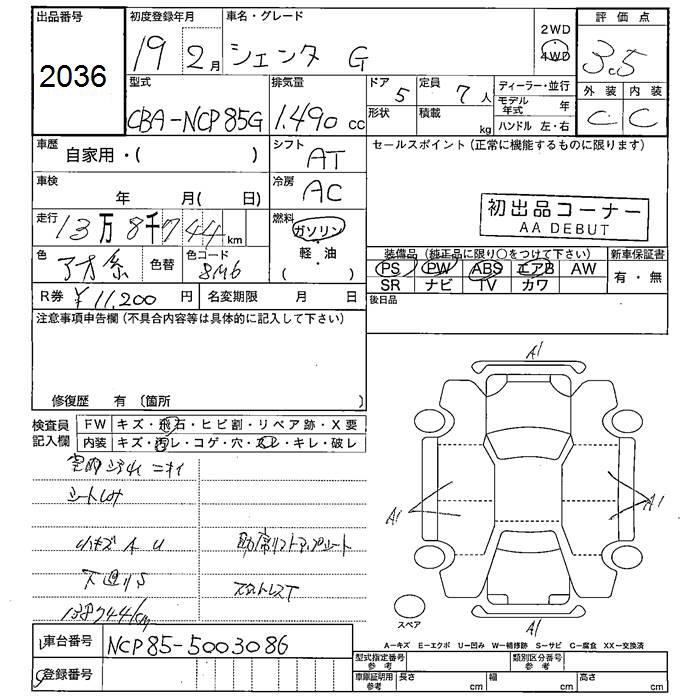 出品番号 初度登録年月 車名・グレード 評価点
2036 19 2月 シエンタ G 2WD 4WD 3.5
型式 排気量 ドア 定員 ディーラー・並行 外装 内装
CBA-NCP85G 1.490cc 5 7人 モデル年式 年 C C
形状 積載 kg ハンドル 左・右
車歴 自家用・( ) シフト AT セールスポイント(正常に機能するものに限ります)
車検 年 月( 日) 冷房 AC
初出品コーナー
AA DEBUT
走行 13万8千744km 燃料 ガソリン・軽油( )
色 色替 色コード 8M6
装備品(純正品に限り○をつけて下さい) 新車保証書
PS PW ABS エアB AW 有・無
SR ナビ TV カワ
R券 ¥11,200円 名変期限 月 日 後日品
注意事項申告欄(不具合内容等は具体的に記入して下さい)
修復歴 有 (箇所 )
検査員記入欄 FW キズ・飛石・ヒビ割・リペア跡・X要
内装 キズ・汚レ・コゲ・穴・スレ・キレ・破レ
シートしみ
小キズ A U 助席リフトアップシート
下廻りS スタットレスT
138744km
A1
A1 A1
A1
スペア
車台番号 NCP85-5003086
登録番号
A=キズ E=エクボ U=凹み W=補修跡 S=サビ C=腐食 XX=交換済
型式指定番号 参考 類別区分番号 参考
車庫証明用 参考 長さ cm 幅 cm 高さ cm